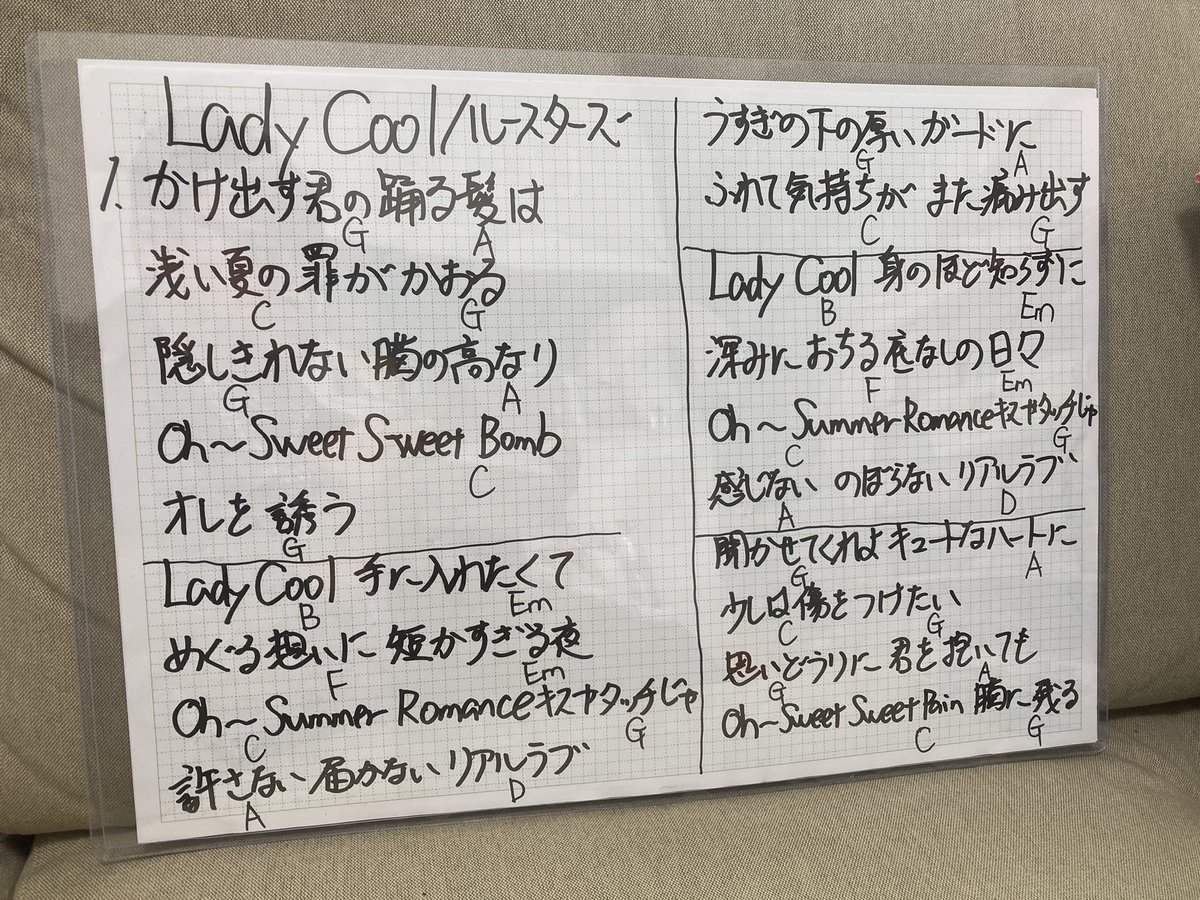 Lady Cool/ルースターズ
1. かけ出す君の踊る髪は
G A
浅い夏の罪がかおる
C G
隠しきれない胸の高なり
G A
Oh〜Sweet Sweet Bomb
C
オレを誘う
G
Lady Cool 手に入れたくて
B Em
めぐる想いに 短かすぎる夜
F Em
Oh〜Summer Romanceキスヤタッチじゃ
C G
許さない 届かない リアルラブ
A D
うすぎの下の厚いガードに
G A
ふれて気持ちが また痛み出す
C G
Lady Cool 身のほど知らずに
B Em
深みにおちる夜なしの日々
F Em
Oh〜Summer Romanceキスヤタッチじゃ
C G
感じない のぼらない リアルラブ
A D
聞かせてくれよ キュートなハートに
G A
少しは傷をつけたい
C G
思いどうりに 君を抱いても
G A
Oh〜Sweet Sweet Pain 胸に残る
C G